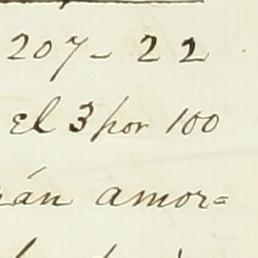 207- 22
el 3 por 100
rán amor=